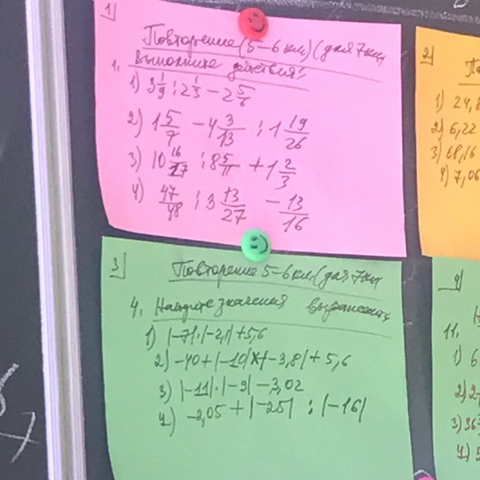 1)
Повторение (5-6 кл) (для 7 кл)
1. Выполните действия:
1) 3 1/9 : 2 1/3 - 2 5/6
2) 1 5/7 - 4 3/13 : 1 19/26
3) 10 16/27 : 8 5/11 + 1 2/3
4) 47/48 : 3 13/27 - 13/16
3)
Повторение 5-6 кл (для 7 кл
4. Найдите значения выражений
1) |-7|·|-2,1|+5,6
2) -40+|-10|×|-3,8|+5,6
3) |-11|·|-9|-3,02
4) -2,05+|-25| : |-16|
2)
1) 24,8
2) 6,22
3) 68,16
4) 7,06
4)
11.
1) 6
2) 2
3) 36
4) 5